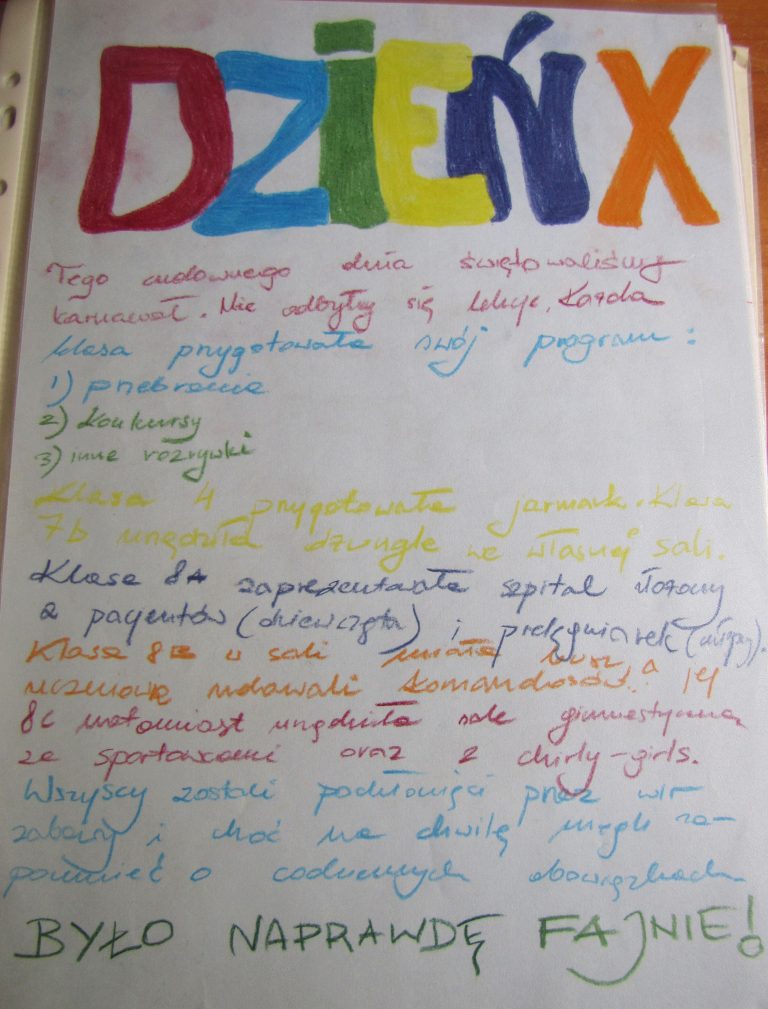 DZIEŃ X
Tego cudownego dnia świętowaliśmy
karnawał. Nie odbyły się lekcje. Każda
klasa przygotowała swój program:
1) przebranie
2) Konkursy
3) inne rozrywki
Klasa 4 przygotowała jarmark. Klasa
7b urządziła dżunglę we własnej sali.
Klasa 8A zaprezentowała szpital złożony
z pacjentów (dziewczęta) i pielęgniarek (chłopcy).
Klasa 8B w sali miała busz, a
uczniowie udawali "komandosów".
8c natomiast urządziła salę gimnastyczną
ze sportowcami oraz z chirly-girls.
Wszyscy zostali pochłonięci przez wir
zabawy i choć na chwilę mogli za-
pomnieć o codziennych obowiązkach.
BYŁO NAPRAWDĘ FAJNIE!